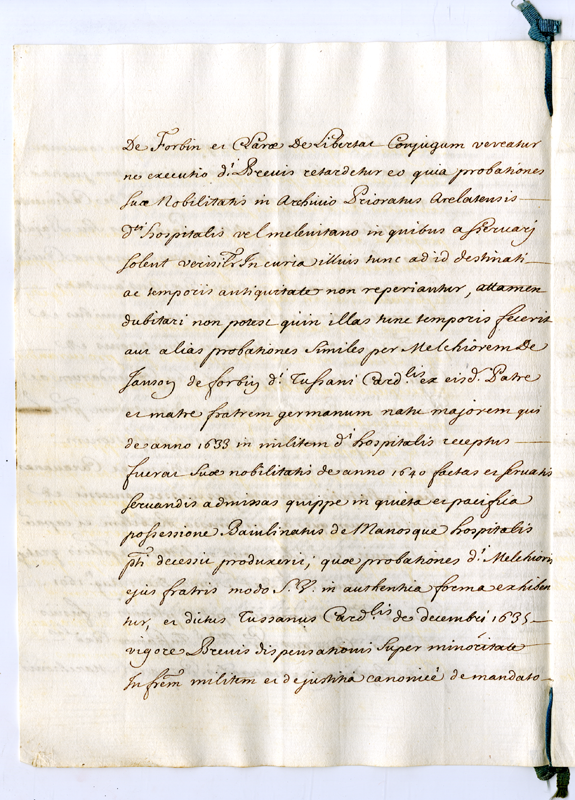 De Forbin et Claræ De Libertat Conjugum vereatur
ne executio d.ⁱ Brevis retardetur eo quia probationes
suæ Nobilitatis in Archivio Prioratus Arelatensis
d.ⁱⁱ hospitalis vel melevitano in quibus asservarj
solent verisil.ʳ In curia illius tunc ad id destinati
ac temporis antiquitate non reperiantur, attamen
dubitari non potest quin illas tunc temporis fecerit
aut alias probationes similes per Melchiorem De
Janson de forbin d.ⁱ Tussani Card.ˡⁱˢ ex eisd. Patre
et matre fratrem germanum natu majorem qui
de anno 1633 in militem d.ⁱ hospitalis receptus
fuerat suæ nobilitatis de anno 1640 factas et servatis
servandis admissas quippe in quieta et pacifica
possessione Baiulinatus de Manosque hospitalis
pti decessit produxerit; quæ probationes d.ⁱ Melchioris
ejus fratris modo S. V. in authentia forma exhiben
tur, et dictus Tussanus Card.ˡⁱˢ de decembri 1635
vigore Brevis dispensationis super minoritate
In frem militem et de justitia canonicè de mandato